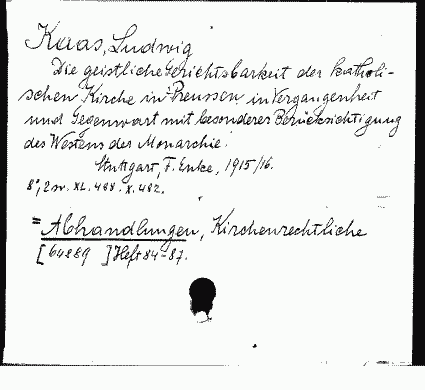 Kaas, Ludwig
Die geistliche Gerichtsbarkeit der katholi-
schen Kirche in Preussen in Vergangenheit
und Gegenwart mit besonderer Berücksichtigung
des Westens der Monarchie.
Stuttgart, F. Enke, 1915/16.
8°, 2 w. XL. 488. X. 482.
= Abhandlungen, Kirchenrechtliche
[64889 ] Heft 84-87.